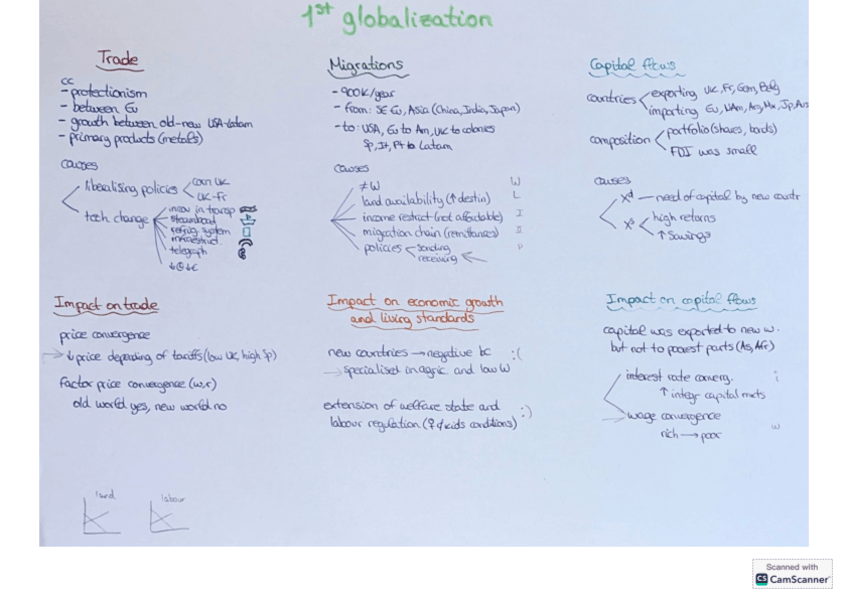 1st globalization
Trade
CC
- protectionism
- between Eu
- growth between old-new USA-Latam
- primary products (metals)
causes
liberalising policies
corn UK
UK-Fr
tech change
innov in transp
steamboat
refrig system
infrastruct.
telegraph
Migrations
- 900K/year
- from: SE Eu, Asia (China, India, Japan)
- to: USA, Eu to Am, UK to colonies
Sp, It, Pt to Latam
causes
≠W
land availability (↑ destin)
income restrict (not affordable)
migration chain (remittances)
policies
sending
receiving
W
L
I
Capital flows
countries
exporting UK, Fr, Gem, Belg
importing Eu, NAm, Arg, Mx, Jp, Aus
composition
portfolio (shares, bonds)
FDI was small
causes
xd — need of capital by new countr
xs
high returns
↑ savings
Impact on trade
price convergence
→ ↓ price depending of tariffs (low UK, high Sp)
factor price convergence (w,r)
old world yes, new world no
land
labour
Impact on economic growth
and living standards
new countries → negative bc :(
→ specialised in agric and low W
extension of welfare state and
labour regulation (♀ & kids conditions) :)
Impact on capital flows
capital was exported to new w.
but not to poorest parts (As, Afr)
interest rate converg. i
↑ integr capital mkts
wage convergence
rich → poor
w
Scanned with
CS CamScanner